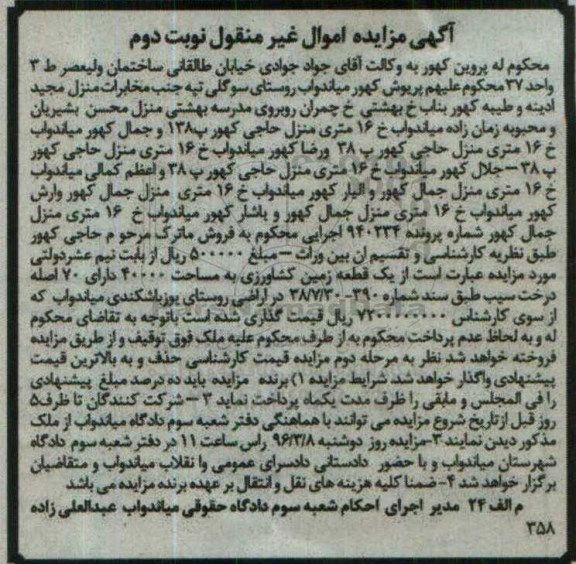 آگهی مزایده اموال غیر منقول نوبت دوم
محکوم له پروین کهور به وکالت آقای جواد جوادی خیابان طالقانی ساختمان ولیعصر ط ۳
واحد ۳۷ محکوم علیهم پریوش کهور میاندواب روستای سوگلی تپه جنب مخابرات منزل مجید
ادینه و طیبه کهور بناب خ بهشتی خ چمران روبروی مدرسه بهشتی منزل محسن بشیریان
و محبوبه زمان زاده میاندواب خ ۱۶ متری منزل حاجی کهور پ۱۳۸ و جمال کهور میاندواب
خ ۱۶ متری منزل حاجی کهور پ ۳۸ ورضا کهور میاندواب خ ۱۶ متری منزل حاجی کهور
پ ۳۸ – جلال کهور میاندواب خ ۱۶ متری منزل حاجی کهور پ ۳۸ و اعظم کمالی میاندواب
خ ۱۶ متری منزل جمال کهور و الیار کهور میاندواب خ ۱۶ متری منزل جمال کهور وارش
کهور میاندواب خ ۱۶ متری منزل جمال کهور و باشار کهور میاندواب خ ۱۶ متری منزل
جمال کهور شماره پرونده ۹۴۰۲۳۴ اجرایی محکوم به فروش ماترک مرحو م حاجی کهور
طبق نظریه کارشناسی و تقسیم ان بین وراث – مبلغ ۵۰۰۰۰۰ ریال از بابت نیم عشردولتی
مورد مزایده عبارت است از یک قطعه زمین کشاورزی به مساحت ۴۰۰۰۰ دارای ۷۰ اصله
درخت سیب طبق سند شماره ۳۹۰–۳۸/۷/۳۰ در اراضی روستای یوزباشکندی میاندواب که
از سوی کارشناس ۷۲۰۰۰۰۰۰۰۰ ریال قیمت گذاری شده است باتوجه به تقاضای محکوم
له و به لحاظ عدم پرداخت محکوم به از طرف محکوم علیه ملک فوق توقیف و از طریق مزایده
فروخته خواهد شد نظر به مرحله دوم مزایده قیمت کارشناسی حذف و به بالاترین قیمت
پیشنهادی واگذار خواهد شد. شرایط مزایده ۱) برنده مزایده باید ده درصد مبلغ پیشنهادی
را فی المجلس و مابقی را ظرف مدت یکماه پرداخت نماید ۲ – شرکت کنندگان تا ظرف۵
روز قبل از تاریخ شروع مزایده می توانند با هماهنگی دفتر شعبه سوم دادگاه میاندواب از ملک
مذکور دیدن نمایند ۳-مزایده روز دوشنبه ۹۶/۳/۸ راس ساعت ۱۱ در دفتر شعبه سوم دادگاه
شهرستان میاندواب و با حضور دادستانی دادسرای عمومی وا نقلاب میاندواب و متقاضیان
برگزار خواهد شد ۴- ضمنا کلیه هزینه های نقل و انتقال بر عهده برنده مزایده می باشد
م الف ۲۴ مدیر اجرای احکام شعبه سوم دادگاه حقوقی میاندواب عبدالعلی زاده
۳۵۸